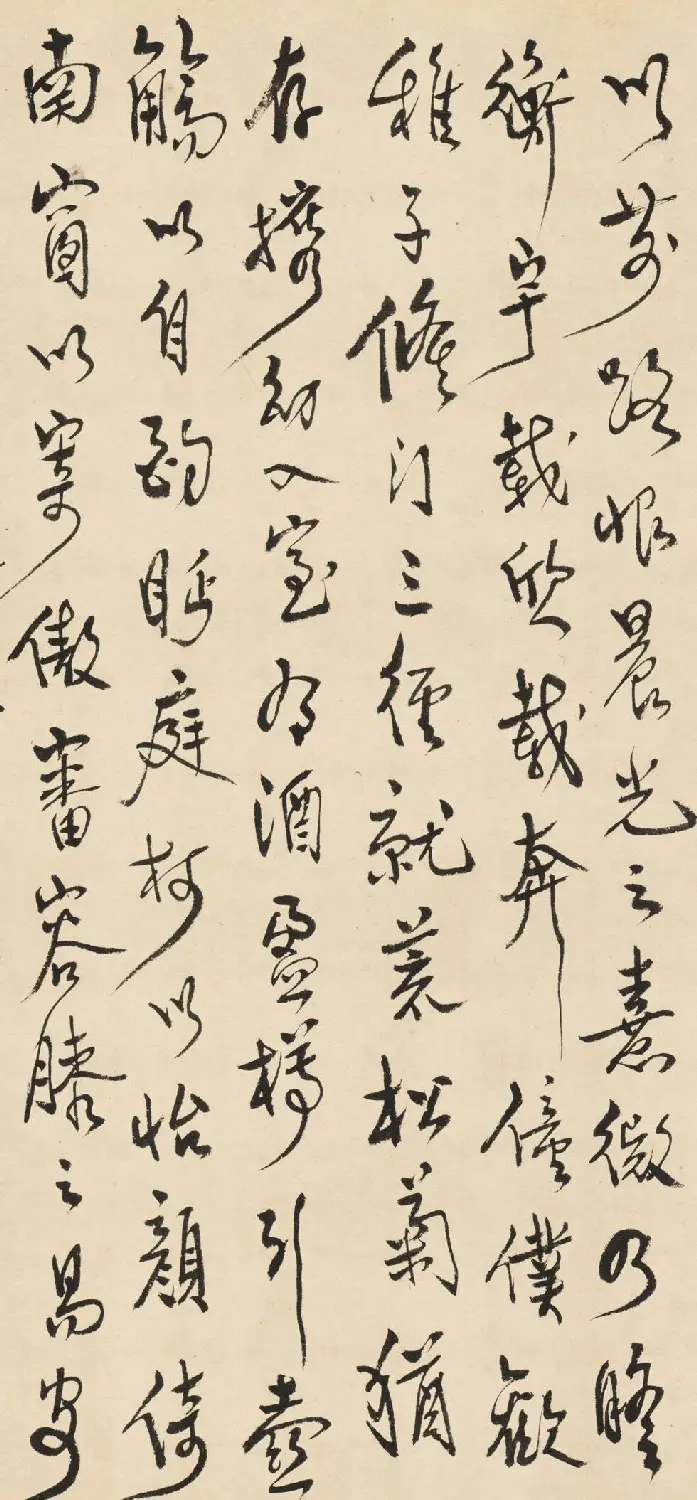 以前路恨晨光之熹微乃瞻
衡宇載欣載奔僮僕歡
稚子候門三徑就荒松菊猶
存攜幼入室有酒盈樽引壺
觴以自酌眄庭柯以怡顏倚
南窗以寄傲審容膝之易安